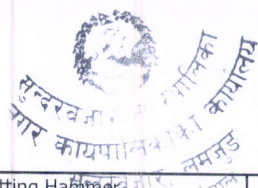 सुन्दरबजार नगरपालिका
नगर कार्यपालिकाको कार्यालय
सुन्दरबजार, लमजुङ
tting Hammer